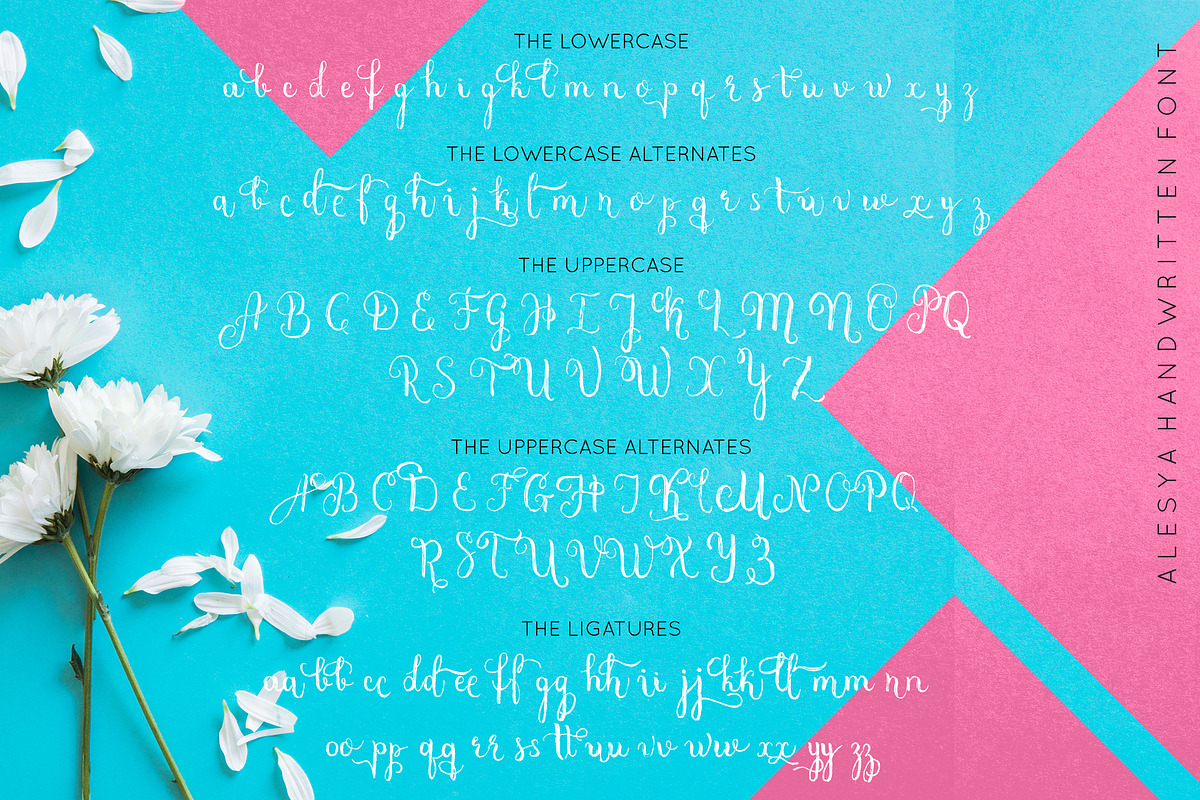 THE LOWERCASE
a b c d e f g h i g k l m n o p q r s t u v w x y z
THE LOWERCASE ALTERNATES
a b c d e f g h i j k l m n o p q r s t u v w x y z
THE UPPERCASE
A B C D E F G H I J K L M N O P Q
R S T U V W X Y Z
THE UPPERCASE ALTERNATES
A B C D E F G H I K L M N O P Q
R S T U V W X Y Z
THE LIGATURES
aa bb cc dd ee ff gg hh ii jj kk ll mm nn
oo pp qq rr ss tt uu vv ww xx yy zz
ALESYA HANDWRITTEN FONT